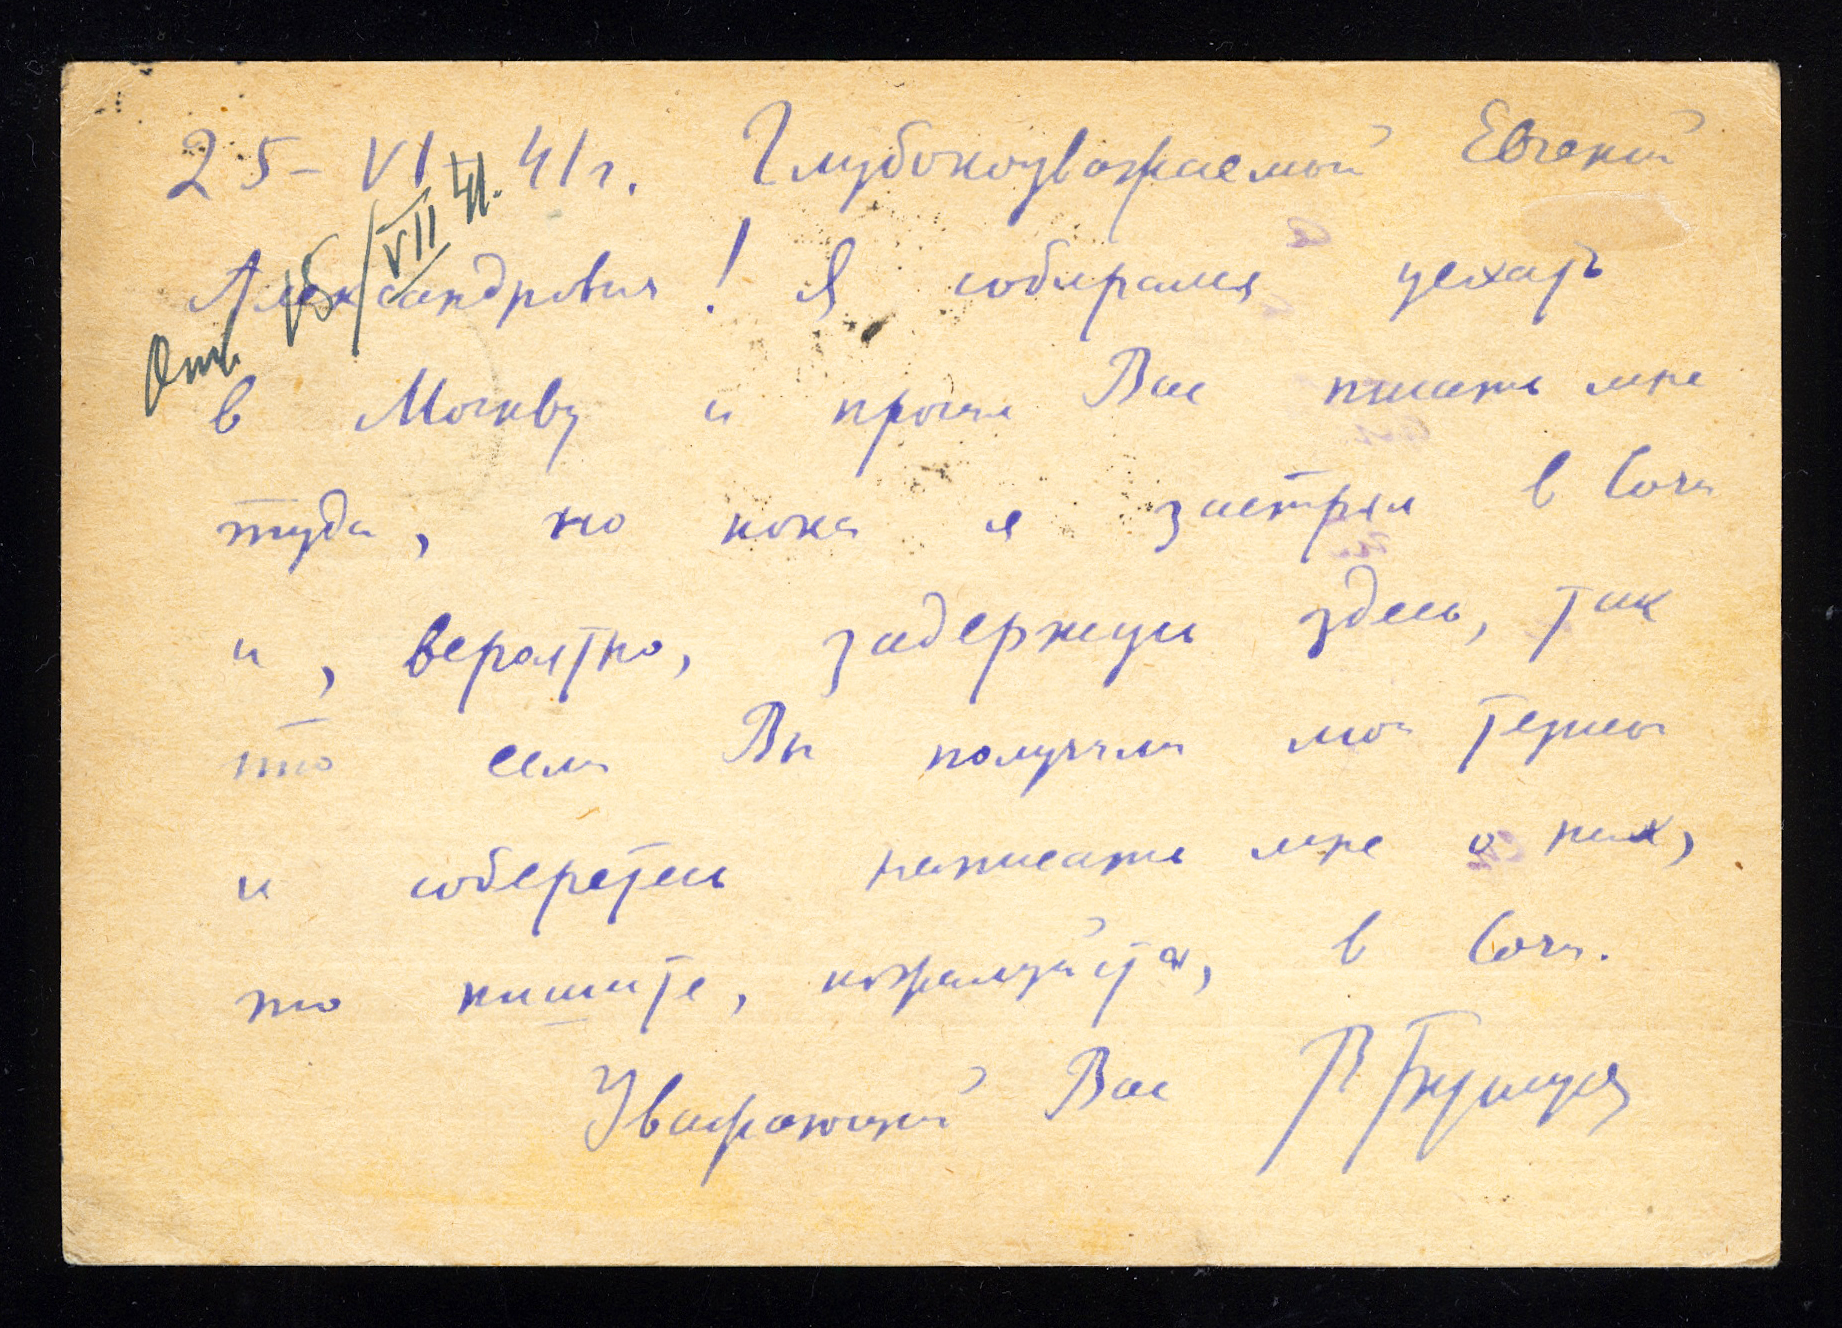 25-VI 41г. Глубокоуважаемой Евгений
Александрович! Я собирался уехать
в Москву и просил Вас писать мне
туда, но пока я застрял в Сочи
и, вероятно, задержусь здесь, так
что если Вы получили мои
и соберетесь написать мне о них,
то пишите, пожалуйста, в Сочи.
Уважающий Вас В
Отв. 15/VII 41.